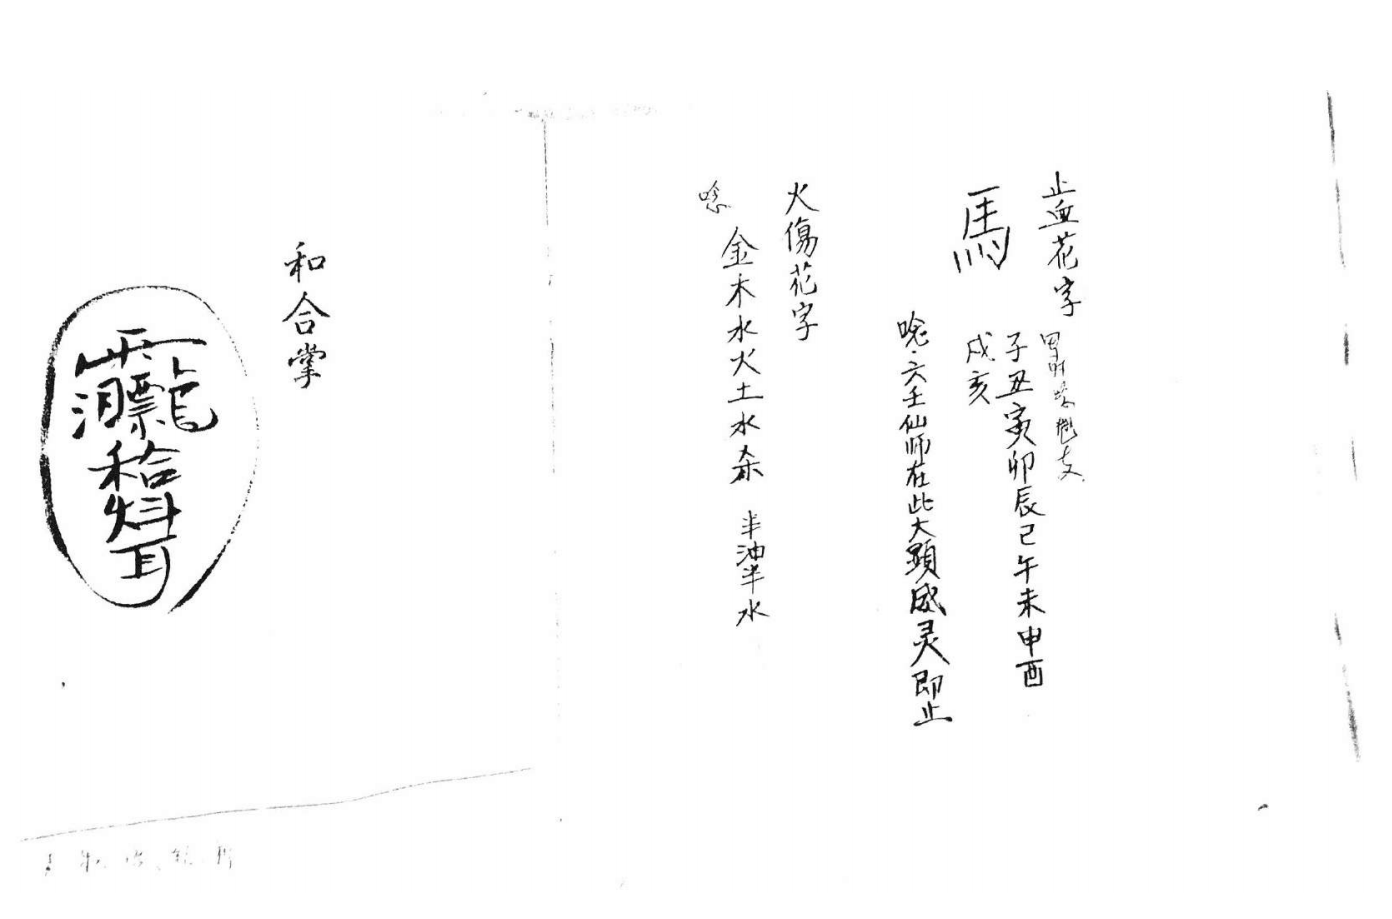 止血花字
馬
子丑寅卯辰己午未申酉
戌亥
唸六壬仙师在此大顕威灵即止
火傷花字
唸
金木水火土水杀 半油半水
和合掌